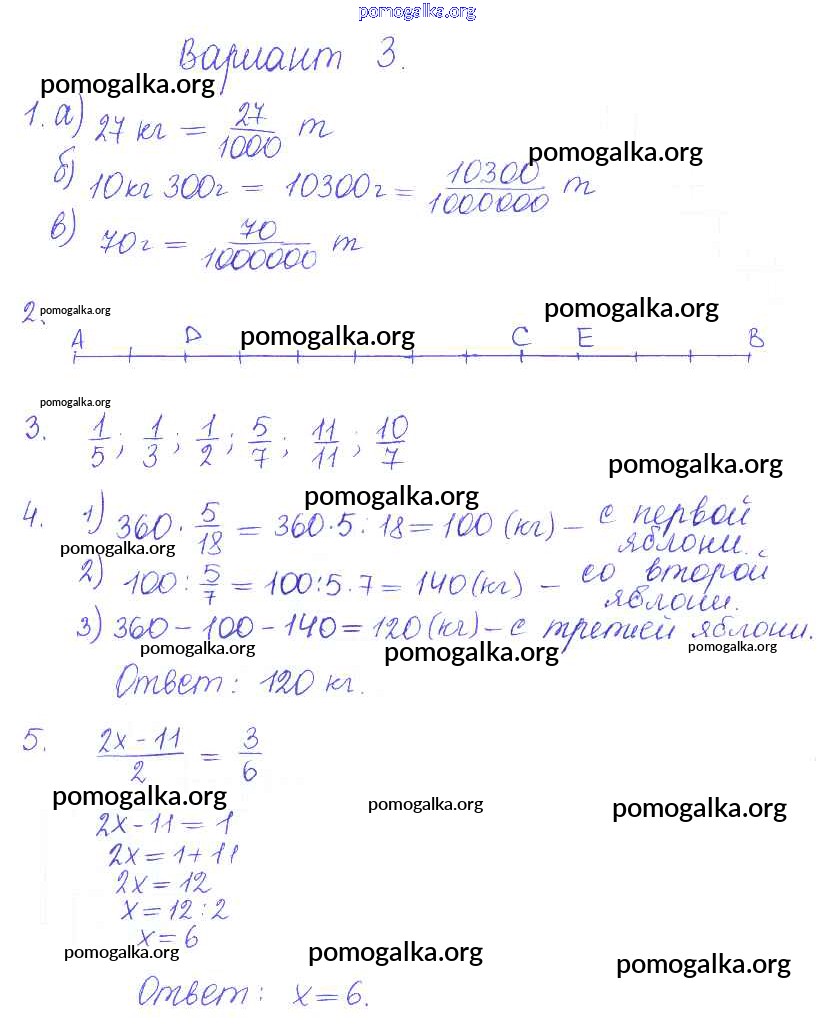 pomogalka.org
Вариант 3.
pomogalka.org
1. а) 27 кг = 27/1000 т
pomogalka.org
б) 10кг 300г = 10300г = 10300/1000000 т
в) 70г = 70/1000000 т
2. pomogalka.org pomogalka.org
A D pomogalka.org C E B
pomogalka.org
3. 1/5; 1/3; 1/2; 5/7; 11/11; 10/7
pomogalka.org
pomogalka.org
4. 1) 360 · 5/18 = 360·5:18 = 100 (кг) – с первой
яблони.
pomogalka.org
2) 100 : 5/7 = 100:5·7 = 140(кг) – со второй
яблони.
3) 360 – 100 – 140 = 120(кг) – с третией яблони.
pomogalka.org pomogalka.org pomogalka.org
Ответ: 120 кг.
5. 2x – 11/2 = 3/6
pomogalka.org pomogalka.org pomogalka.org
2x – 11 = 1
2x = 1 + 11
2x = 12
x = 12 : 2
x = 6
pomogalka.org pomogalka.org pomogalka.org
Ответ: x = 6.